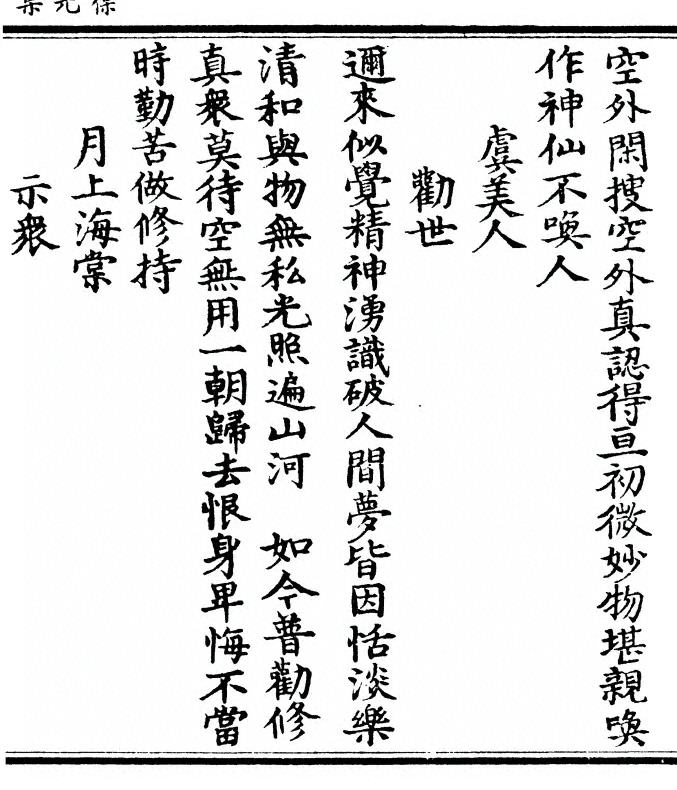 空外閑搜空外真認得亘初微妙物堪親喚
作神仙不喚人
虞美人
勸世
邇來似覺精神湧識破人間夢皆因恬淡樂
清和與物無私光照遍山河　如今普勸修
真衆莫待空無用一朝歸去恨身卑悔不當
時勤苦做修持
月上海棠
示衆